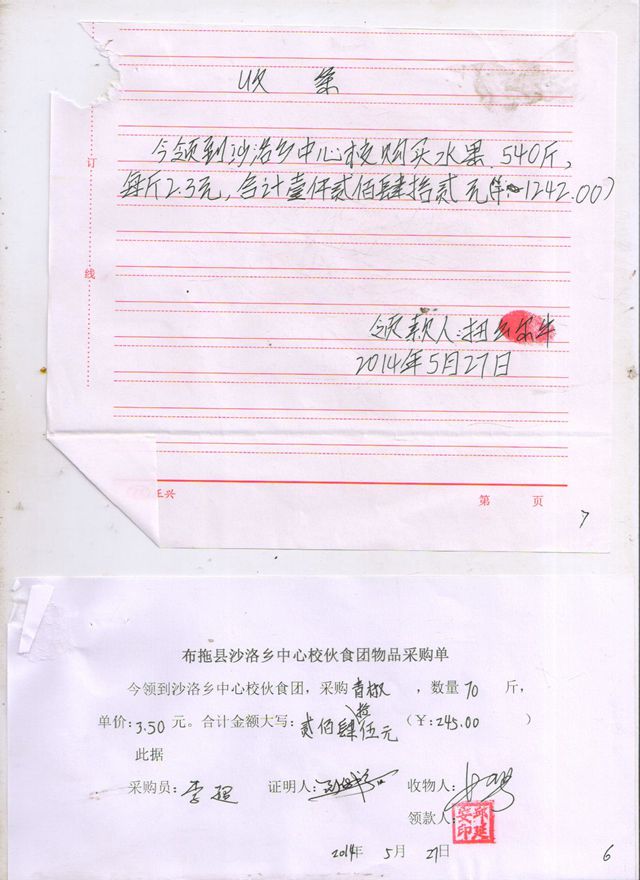 收条
今领到沙洛乡中心校购买水果 540斤,
每斤2.3元,合计壹仟贰佰肆拾贰元(1242.00)
订
线
领款人:
2014年5月27日
王兴
第 页
7
布拖县沙洛乡中心校伙食团物品采购单
今领到沙洛乡中心校伙食团,采购青椒,数量70斤,
单价:3.50元。合计金额大写:贰佰肆拾伍元(¥:245.00)
此据
采购员:李超 证明人: 收物人:
领款人:
邱廷安印
2014年5月27日
6